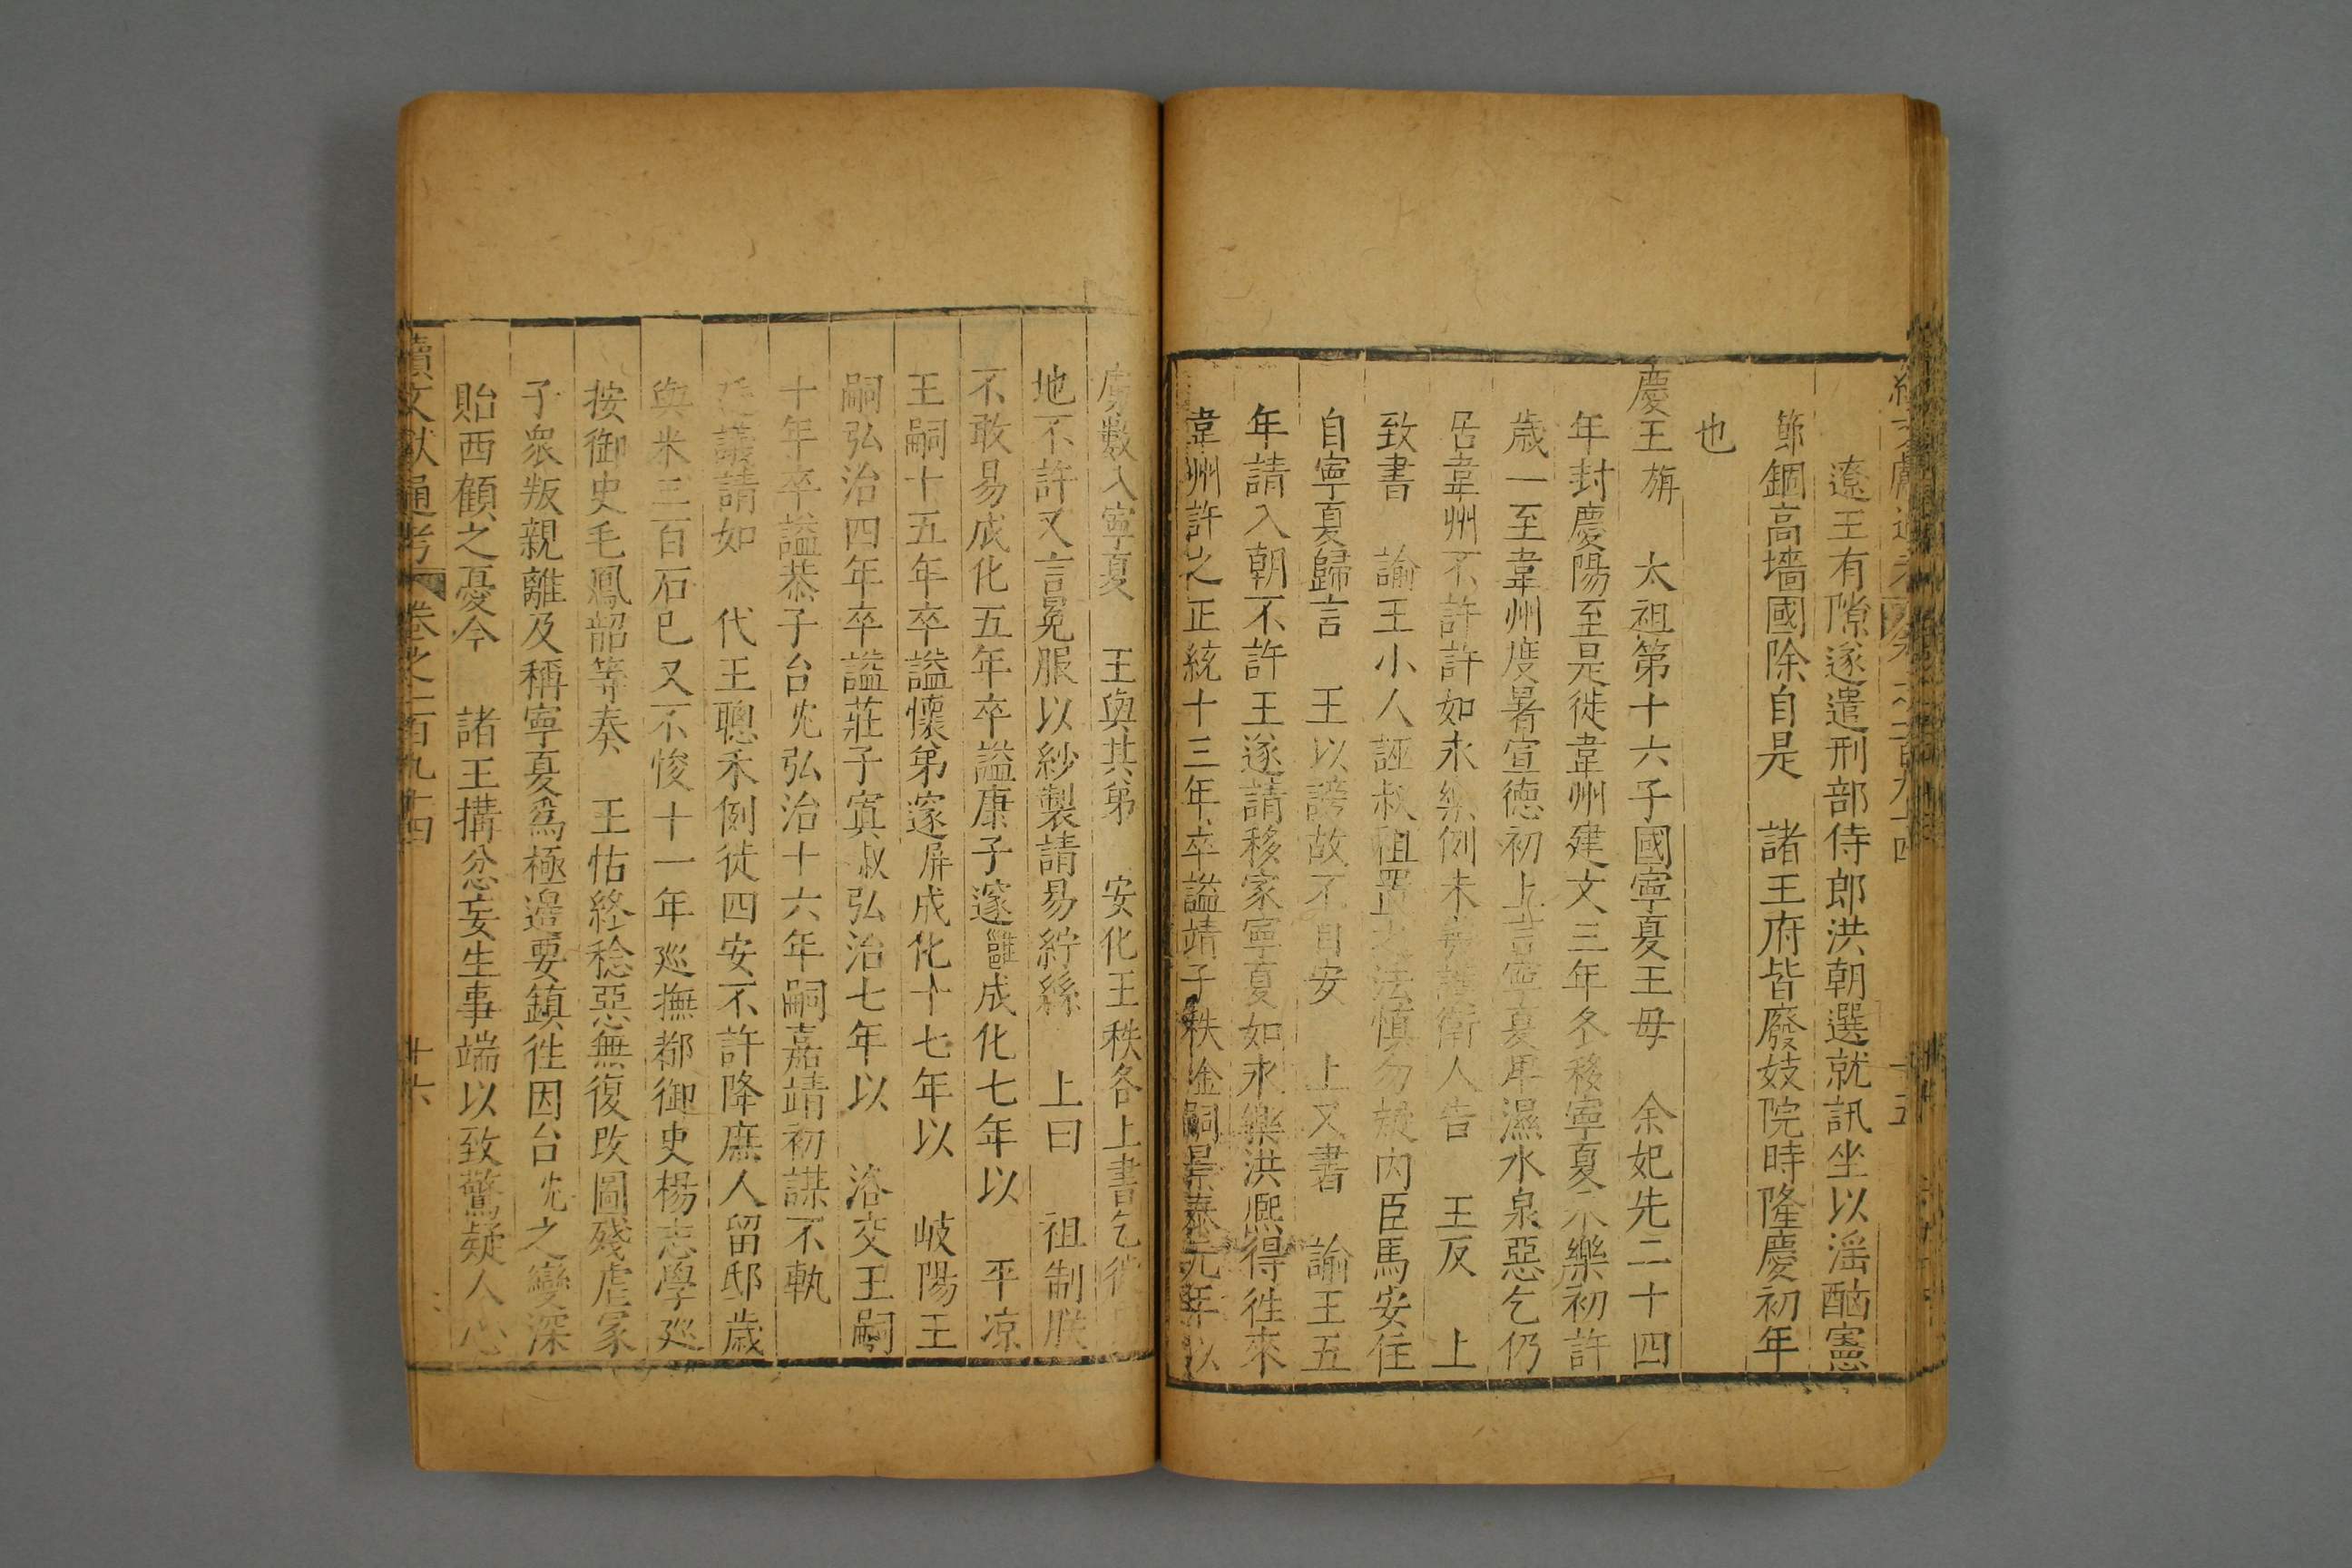 遼王有隙遂遣刑部侍郎洪朝選就訊坐以滛酗憲
節錮高墻國除自是 諸王府皆廢妓院時隆慶初年
也
慶王㮵 太祖第十六子國寧夏王母 余妃先二十四
年封慶陽至是徙韋州建文三年冬移寧夏永樂初許
歲一至韋州度暑宣德初上言寧夏卑濕水泉惡乞仍
居韋州不許許如永樂例未 護衛人告 王反 上
致書 諭王小人誣叔祖置之法慎勿疑內臣馬安徃
自寧夏歸言 王以謗故不自安 上又書 諭王五
年請入朝不許王遂請移家寧夏如永樂洪熙得徃來
韋州許之正統十三年卒謚靖子秩 嗣景泰元年以
虜數入寧夏 王與其弟 安化王秩各上書乞徙
地不許又言冕服以紗製請易紵絲 上曰 祖制朕
不敢易成化五年卒謚康子邃 成化七年以 平凉
王嗣十五年卒謚懷弟邃 成化十七年以 岐陽王
嗣弘治四年卒謚莊子寘 弘治七年以 洛交王嗣
十年卒謚恭子台浤弘治十六年嗣嘉靖初謀不軌
廷議請如 代王聰禾例徒四安不許降庶人留邸歲
與米三百石已又不悛十一年廵撫都御史楊志學廵
按御史毛鳳韶等奏 王怙終稔惡無復改圖殘虐冢
子衆叛親離及稱寧夏爲極邉要鎮徃因台浤之變深
貽西顧之憂今 諸王搆忿妄生事端以致驚疑人心
續文獻通考 卷之二百九十四 十六